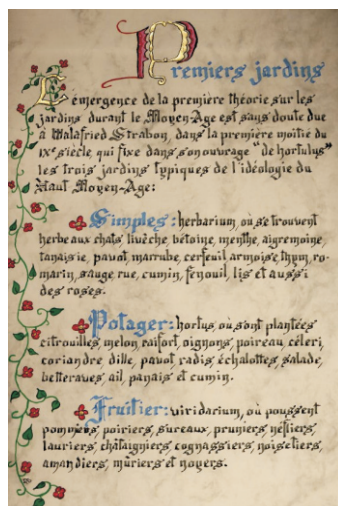 Premiers jardins
L'émergence de la première théorie sur les
jardins durant le Moyen-Age est sans doute due
à Walafried Strabon, dans la première moitié du
IXe siècle, qui fixe dans son ouvrage "de hortulus"
les trois jardins typiques de l'idéologie du
Haut Moyen-Age:
Simples: herbarium, où se trouvent
herbe aux chats, livèche, bétoine, menthe, aigremoine,
tanaisie, pavot, marrube, cerfeuil, armoise, thym, ro-
marin, sauge, rue, cumin, fenouil, lis et aussi
des roses.
Potager: hortus, où sont plantées
citrouilles, melon, raifort, oignons, poireau, céleri,
coriandre, dille, pavot, radis, échalottes, salade,
betteraves, ail, panais et cumin.
Fruitier: viridarium, où poussent
pommiers, poiriers, sureaux, pruniers, néfliers,
lauriers, châtaigniers, cognassiers, noisetiers,
amandiers, mûriers et noyers.